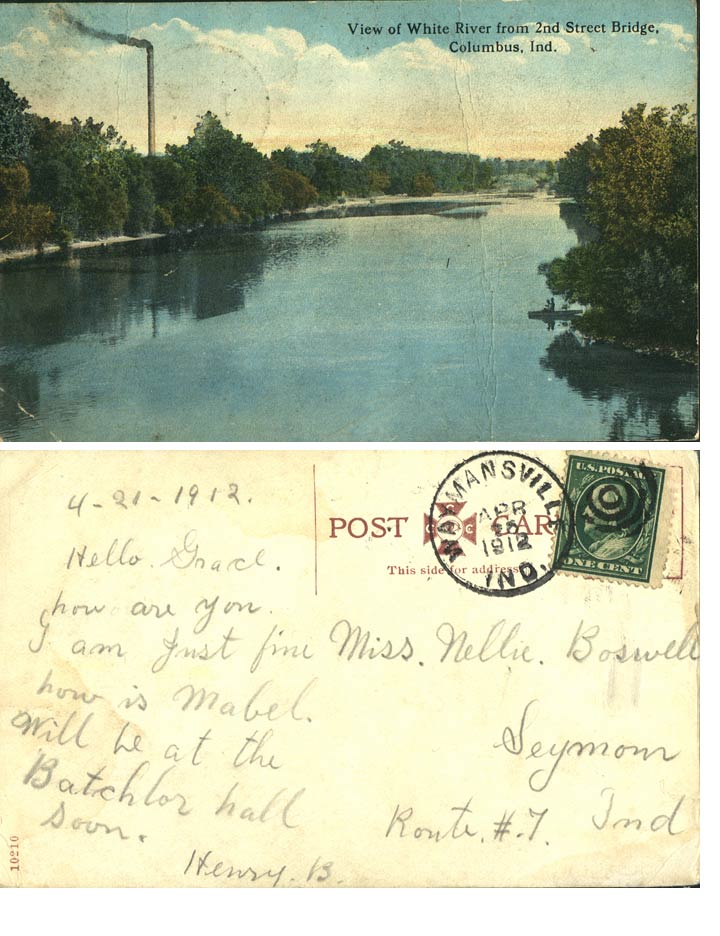 View of White River from 2nd Street Bridge,
Columbus, Ind.
4-21-1912.
Hello Grace.
how are you.
I am Just fine
how is Mabel.
Will be at the
Batchlor hall
soon.
Henry. B.
10210
POST CARD
This side for address
WAYMANSVILLE
APR
1912
IND.
U.S. POSTAGE
ONE CENT
Miss. Nellie. Boswell
Seymour
Route. #.7. Ind